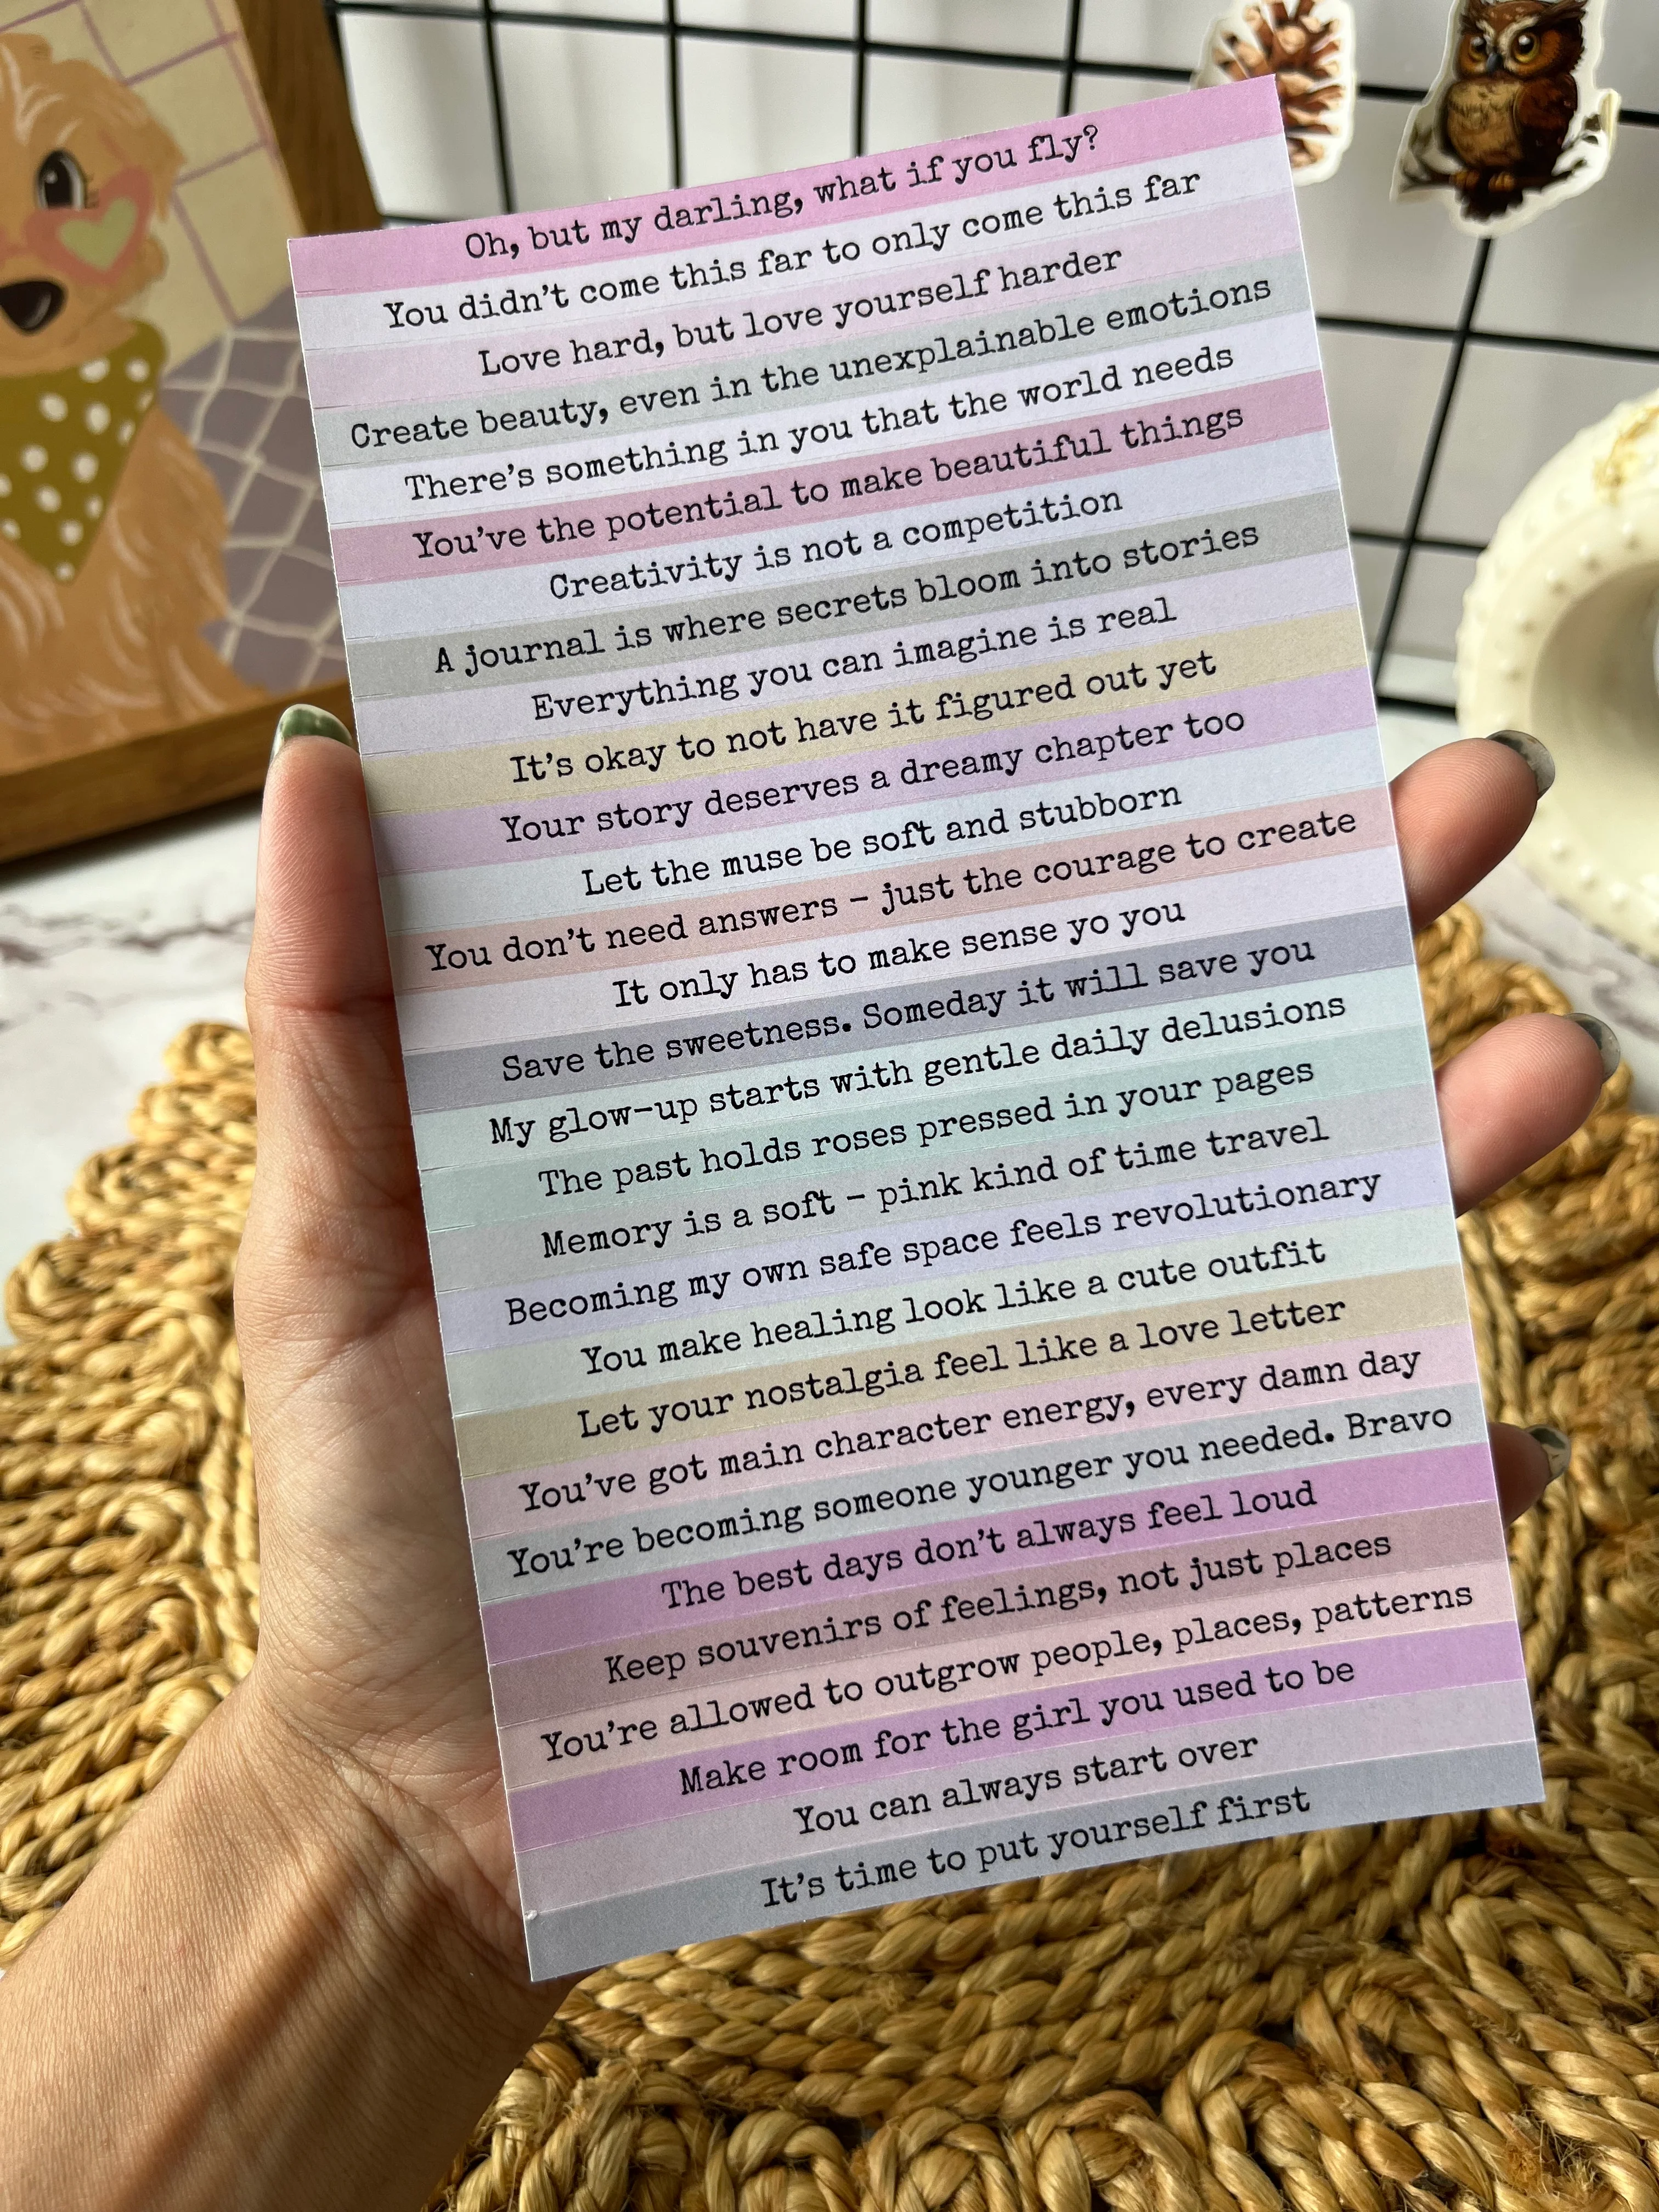 Oh, but my darling, what if you fly?
You didn't come this far to only come this far
Love hard, but love yourself harder
Create beauty, even in the unexplainable emotions
There's something in you that the world needs
You've the potential to make beautiful things
Creativity is not a competition
A journal is where secrets bloom into stories
Everything you can imagine is real
It's okay to not have it figured out yet
Your story deserves a dreamy chapter too
Let the muse be soft and stubborn
You don't need answers – just the courage to create
It only has to make sense yo you
Save the sweetness. Someday it will save you
My glow-up starts with gentle daily delusions
The past holds roses pressed in your pages
Memory is a soft – pink kind of time travel
Becoming my own safe space feels revolutionary
You make healing look like a cute outfit
Let your nostalgia feel like a love letter
You've got main character energy, every damn day
You're becoming someone younger you needed. Bravo
The best days don't always feel loud
Keep souvenirs of feelings, not just places
You're allowed to outgrow people, places, patterns
Make room for the girl you used to be
You can always start over
It's time to put yourself first